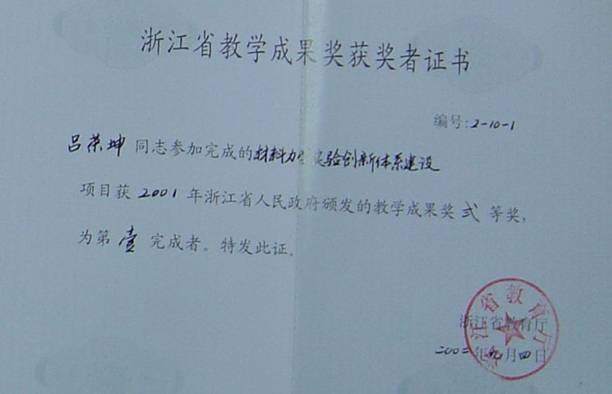 浙江省教学成果奖获奖者证书
编号:2-10-1
吕荣坤 同志参加完成的材料力学实验创新体系建设
项目获 2001 年浙江省人民政府颁发的教学成果奖 弍 等奖,
为第 壹 完成者。特发此证。
浙江省教育厅
浙江省教育厅
2002年九月四日